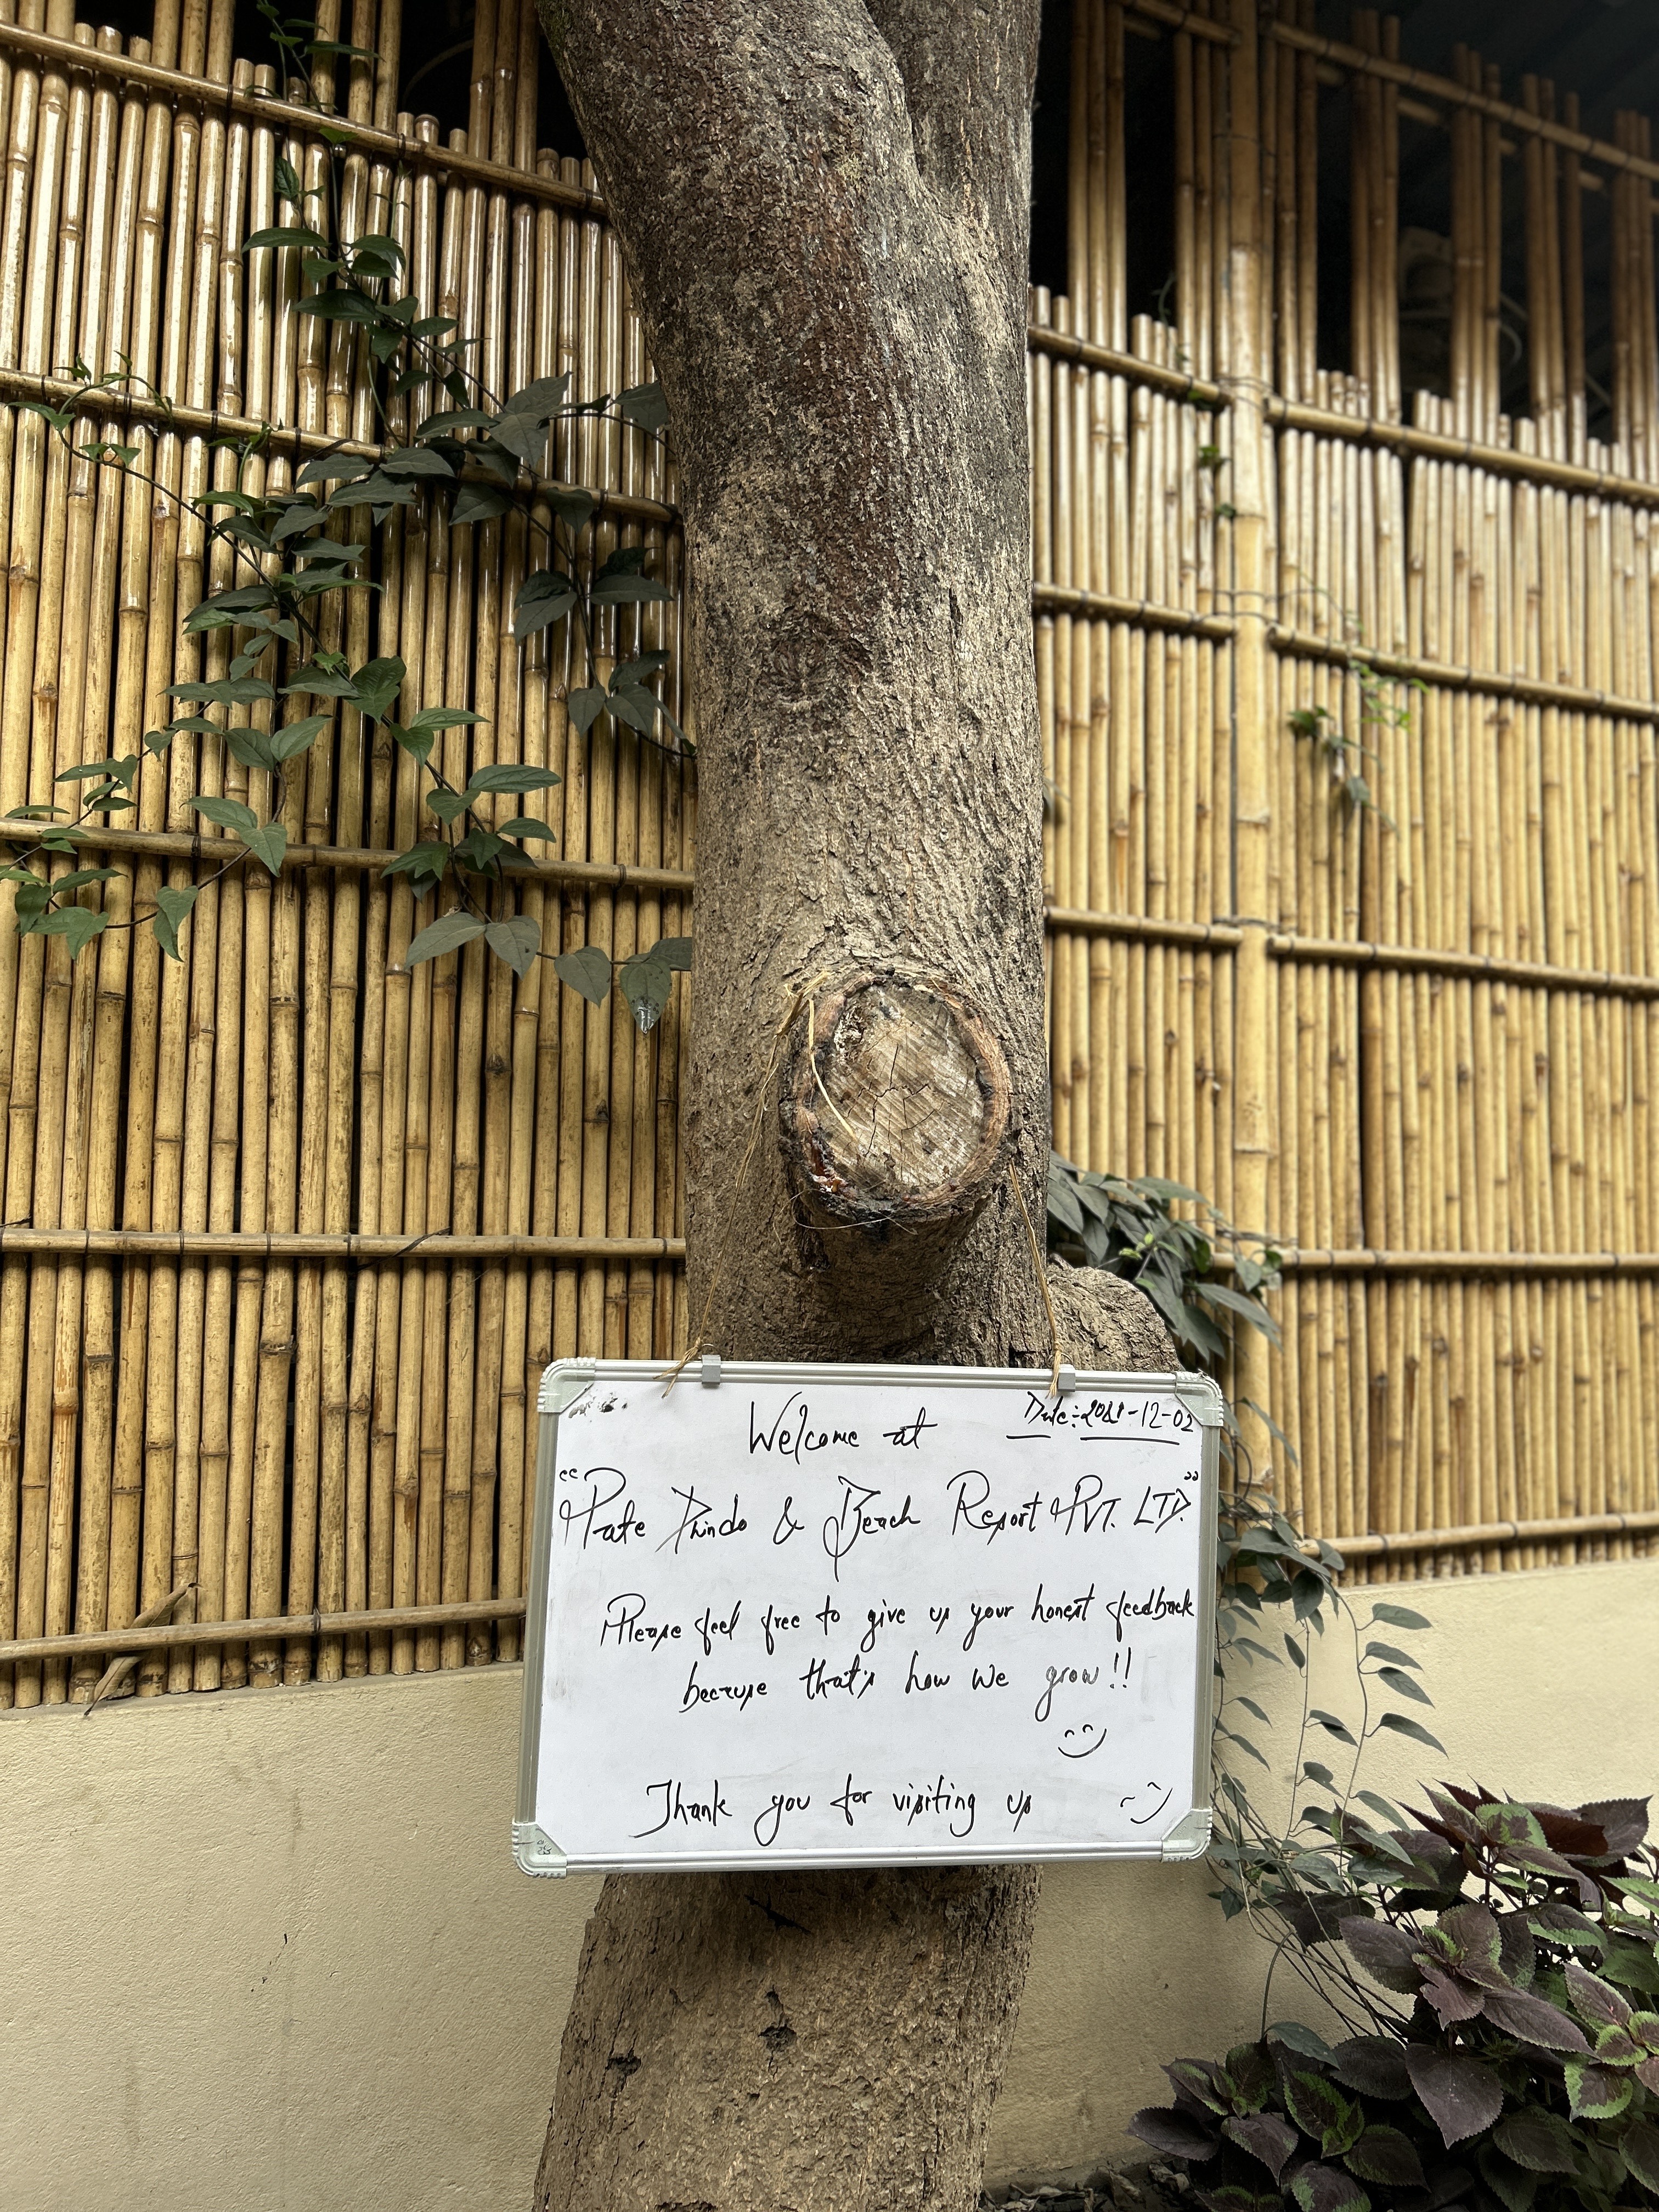 Welcome at
Date:- 2081-12-02
“Pate Dhindo & Beach Resort PVT. LTD.”
Please feel free to give us your honest feedback
because that's how we grow!!
Thank you for visiting us